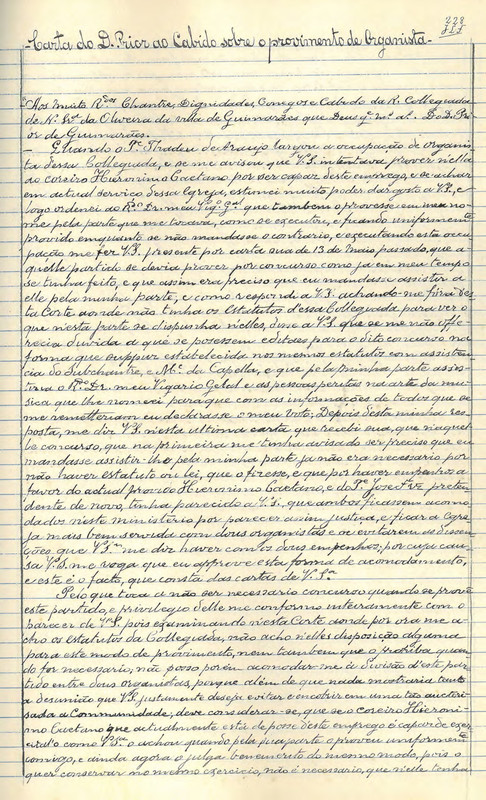 228
Carta do D. Prior ao Cabido sobre o provimento de Organista
Aos Muito R.dos Chantre, Dignidades, Conegos e Cabido da R. Collegiada
de N. Sr.a da Oliveira da villa de Guimarães que Deus g.e m.s a.s Do D. Pri
or de Guimarães.
— Quando o P.e Thadeu de Araujo largou a occupação de organis
ta dessa Collegiada, e se me avisou que V.S. intentava prover n'ella
ao coreiro Hieronimo Caetano por ser capaz deste emprego, e se achar
em actual serviço dessa Egreja, estimei muito poder dar gosto a V.S. e
logo ordenei ao R.do Dr. meu Vig.o g.al que tambem o provesse em meu no
me pela parte que me tocava, como se executou, e ficando uniformemente
provido emquanto se não mandasse o contrario, e executando esta occu
pação me fez V.S. presente por carta sua de 13 de Maio passado, que a
quelle partido se devia prover por concurso como já em meu tempo
se tinha feito, e que assim era preciso que eu mandasse assistir a
elle pela minha parte, e como respondi a V.S. achando-me fóra des
ta Corte aonde não tinha os Estatutos d'essa Collegiada para ver o
que nesta parte se dispunha n'elles, disse a V.S. que se me não offe
recia duvida a que se posessem editaes para o dito concurso na
forma que suppuz estabelecida nos mesmos estatutos com assisten
cia do Subchantre, e M.e da Capella, e que pela minha parte assis
tiria o R.do Dr. meu Vigario Geral e as pessoas peritas na arte da mu
sica que lhe nomeei para que com as informações de todos que se
me remetteriam eu declarasse o meu voto; Depois desta minha res
posta, me diz V.S. nesta ultima carta que recebi sua, que n'aquel
le concurso, que na primeira me tinha avisado ser preciso que eu
mandasse assistir-lhe pela minha parte já não era necessario por
não haver estatuto ou lei, que o fizesse, e que por haver empenhos a
favor do actual provido Hieronimo Caetano, e do P.e José preten
dente de novo, tinha parecido a V.S. que ambos ficassem acomo
dados neste ministerio por parecer assim justiça, e ficar a egre
ja mais bem servida com dous organistas e se evitarem as dissen
ções que V.S. me diz haver com os dous empenhos; por cuja cau
sa V.S. me roga que eu approve esta forma de acomodamento,
e este é o facto, que consta das cartas de V.S.a
Pelo que toca a não ser necessario concurso quando se prove
este partido, e privilegio d'elle me conformo inteiramente com o
parecer de V.S. pois examinando nesta Corte aonde por ora me a
cho os estatutos da Collegiada, não acho n'elles disposição alguma
para este modo de provimento, nem tambem que o prohiba quan
do for necessario; não posso porém acomodar-me á divisão d'este par
tido entre dous organistas, porque além de que nada mostraria tanto
a desunião que V.S. justamente deseja evitar e encobrir em uma tão auctori
sada a Communidade; deve considerar-se, que se o coreiro Hieroni
mo Caetano que actualmente está de posse deste emprego é capaz de exer
cital'o como V.S. o achou quando pela sua parte o proveu uniformem.e
comigo, e ainda agora o julga benemerito do mesmo modo, pois o
quer conservar no mesmo exercicio, não é necessario, que n'elle tenha